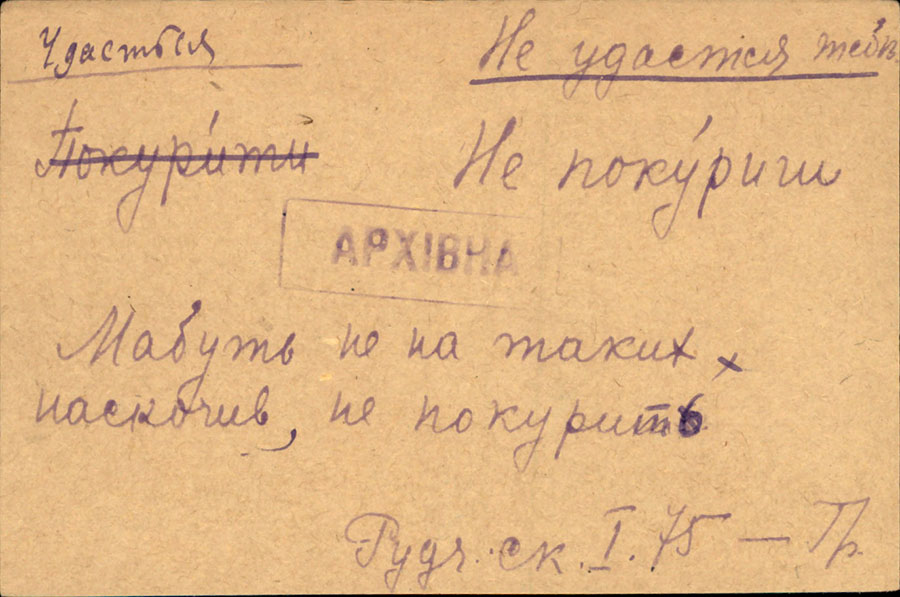 Удасться
Не удастся тебѣ.
Покури́ти
Не поку́риш
АРХІВНА
Мабуть не на таких
наскочив, не покурить
Рудч. ск. I. 75 — Гр.